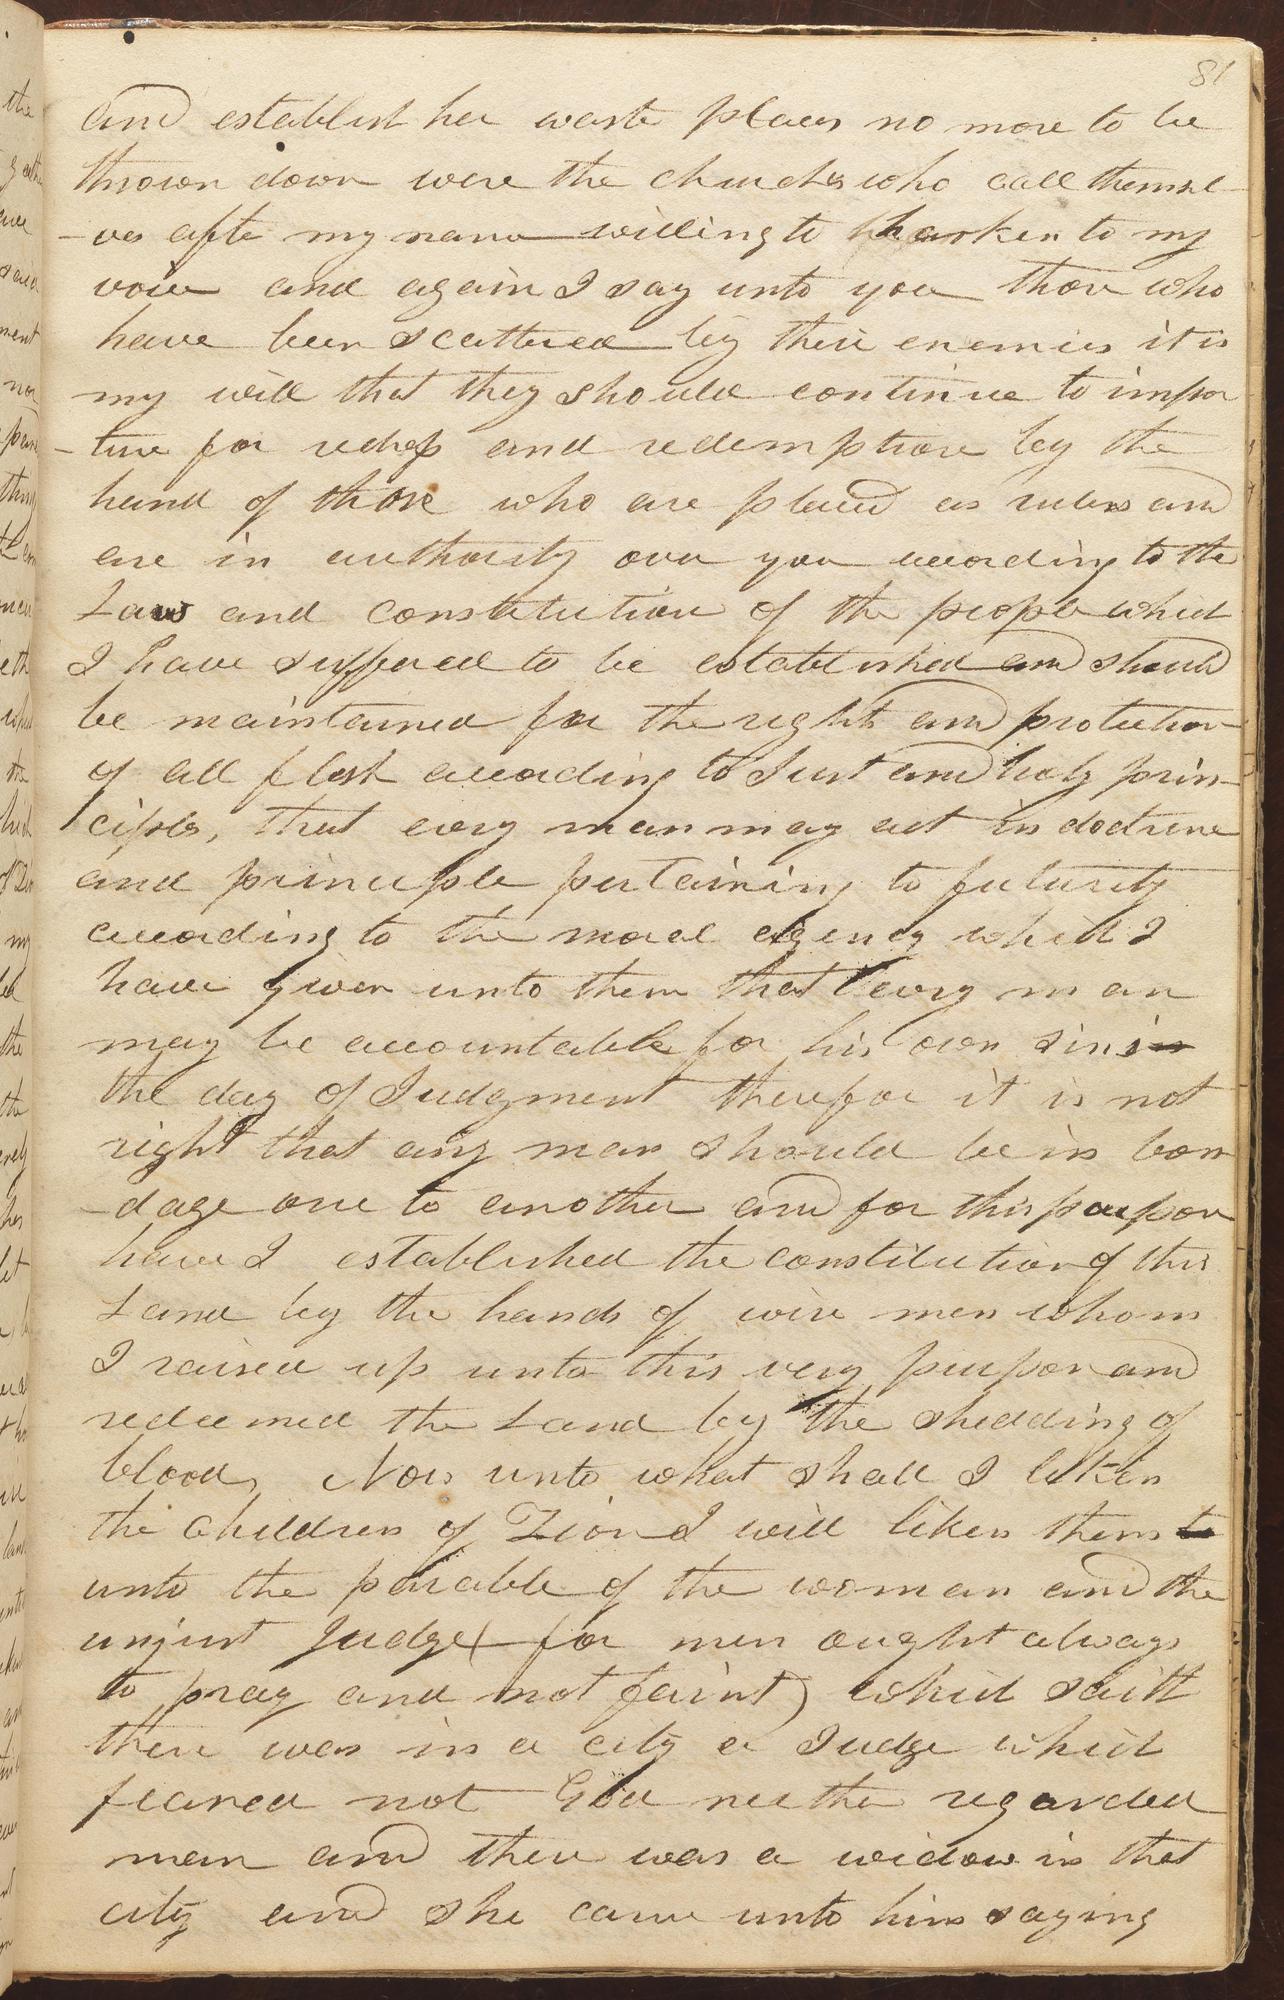 81
and establish her waste places no more to be
thrown down were the churches who call themsel
-ves afte my name willing to hearken to my
voice and again I say unto you those who
have been scattered by their enemies it is
my will that they should continue to impor
-tune for redress and redemption by the
hand of those who are placed as rulers and
are in authority over you according to the
Law and constitution of the people which
I have suffered to be established and should
be maintained for the rights and protection
of all flesh according to Just and holy prin-
ciples, that every man may act in doctrine
and principle pertaining to futurity
according to the moral agency which I
have given unto them that every man
may be accountable for his own sins in
the day of Judgment therefor it is not
right that any man should be in bon
-dage one to another and for this purpose
have I established the constitution of this
Land by the hands of wise men whom
I raised up unto this very purpose and
redeemed the Land by the shedding of
blood, Now unto what shall I liken
the children of Zion I will liken them to
unto the parable of the woman and the
unjust Judge (for men ought always
to pray and not faint) which saith
there was in a city a Judge which
feared not God neither regarded
man and there was a widow in that
city and she came unto him saying